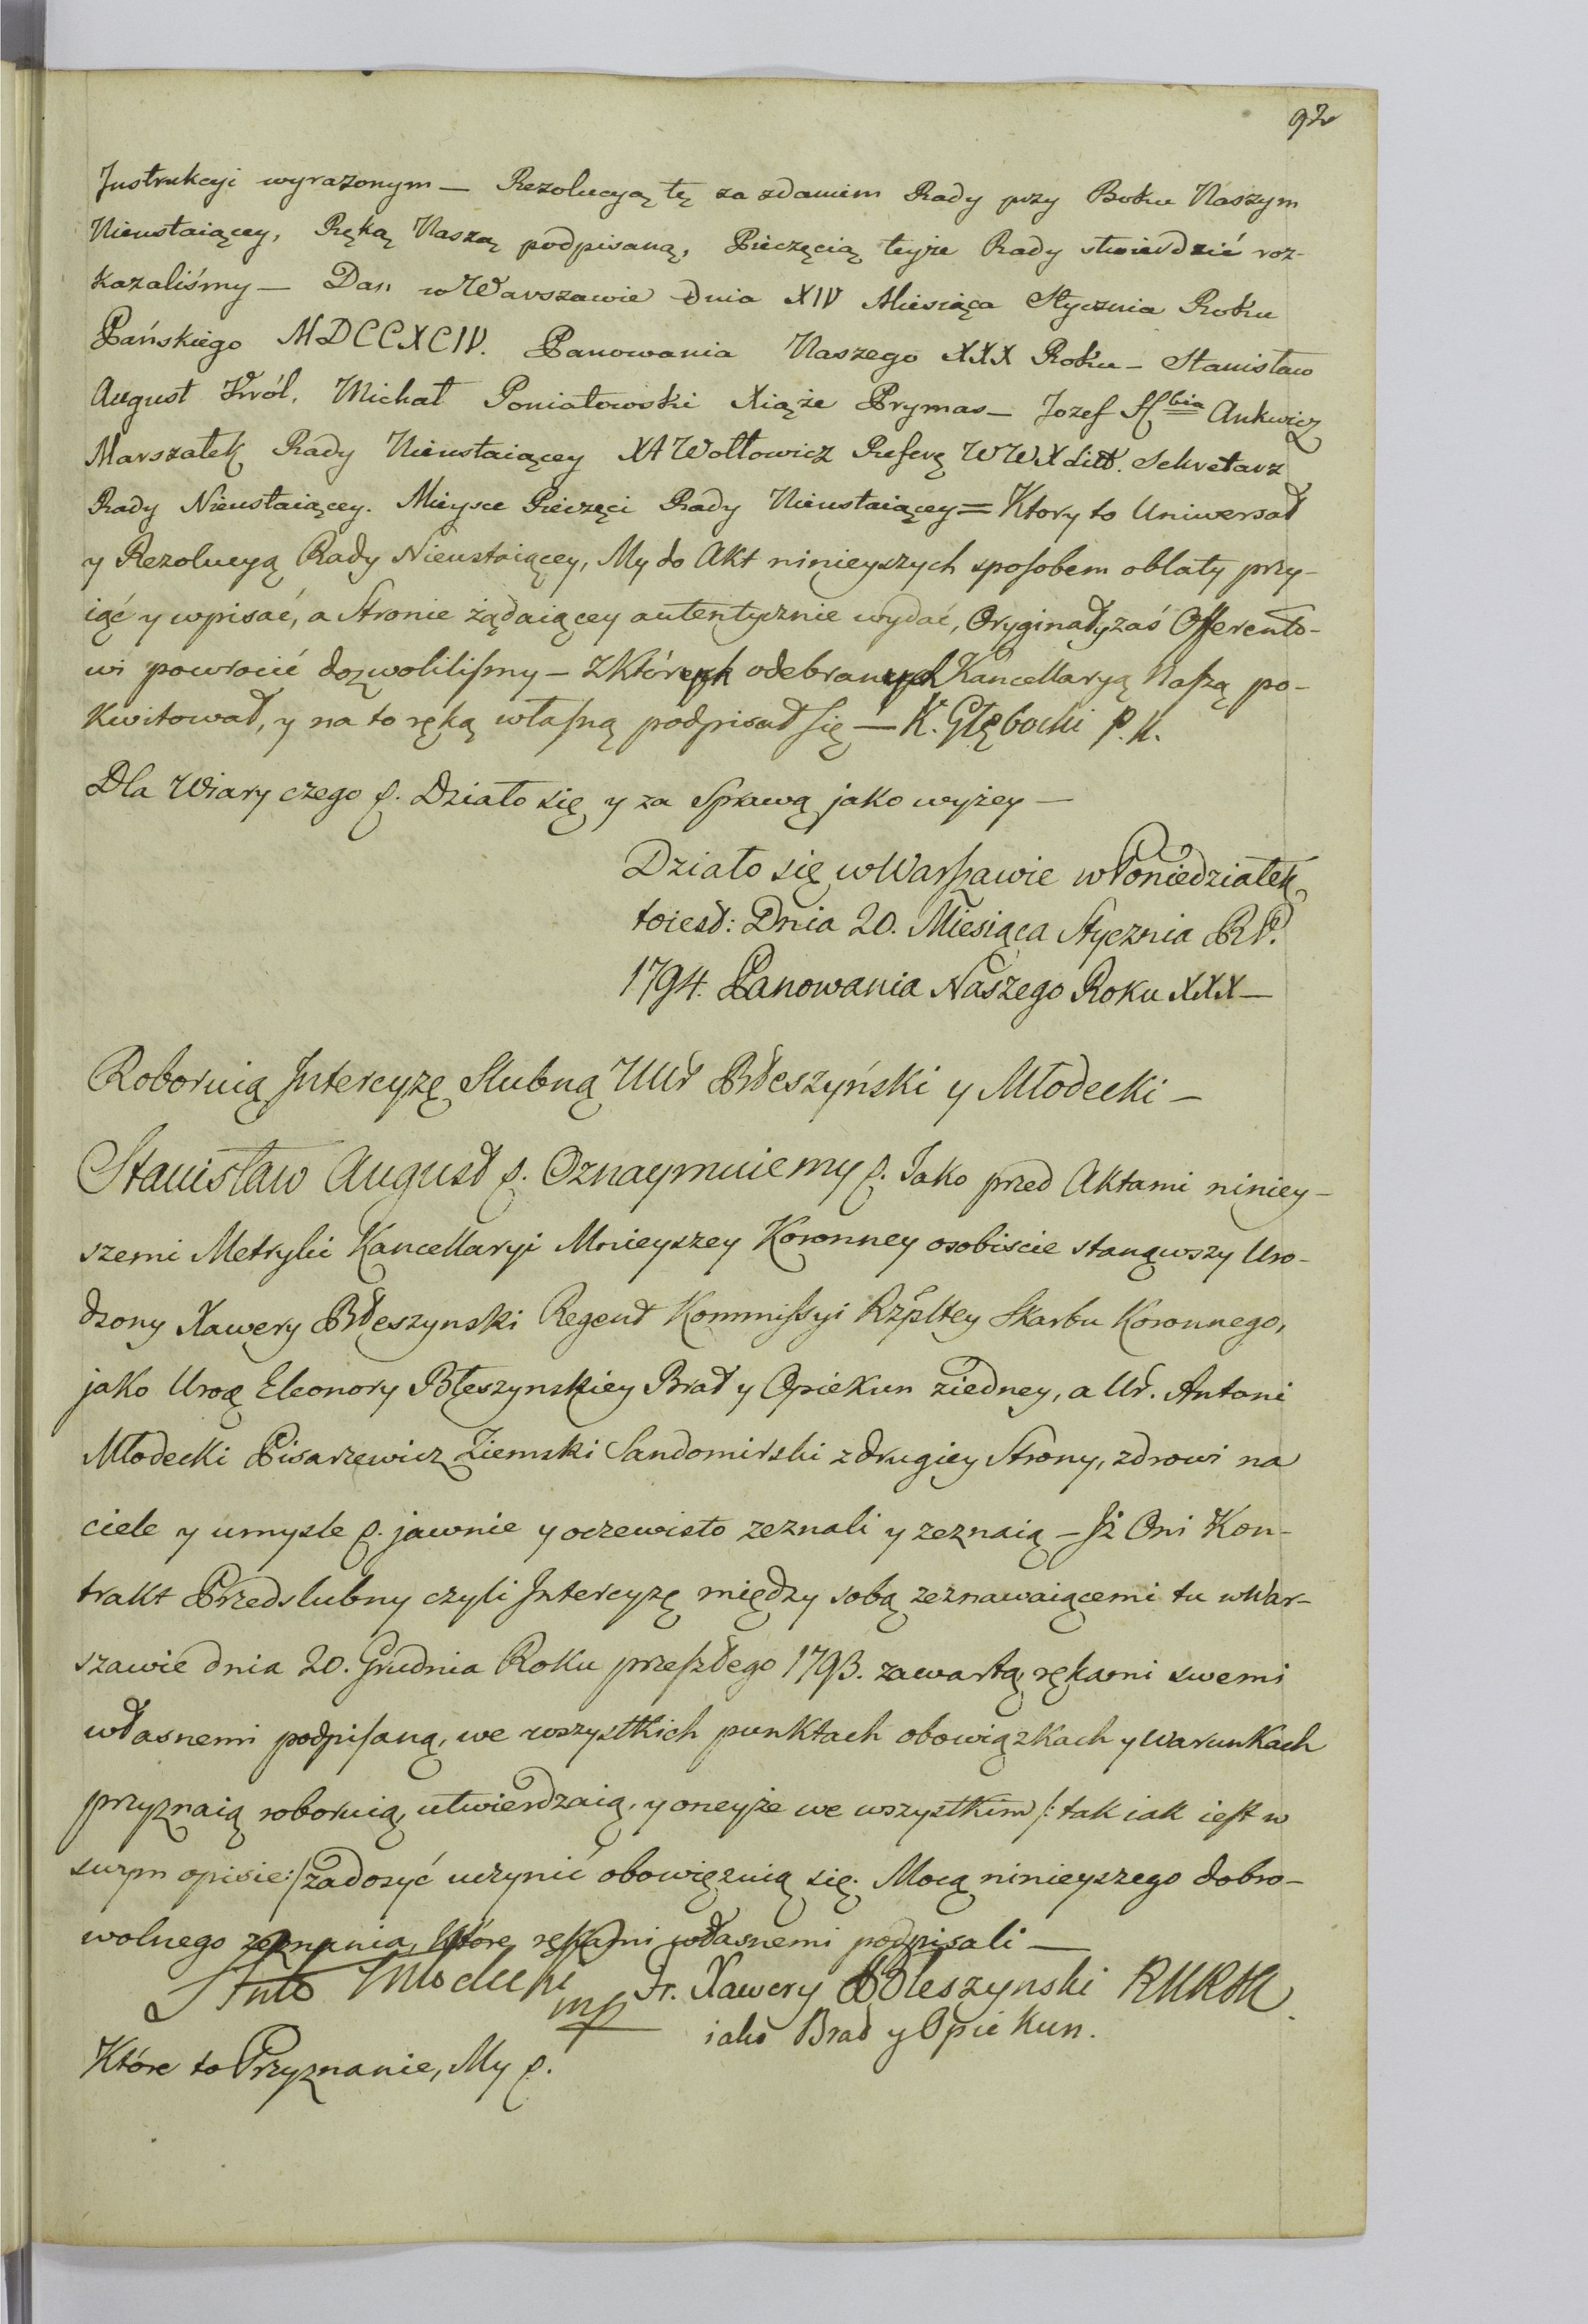 92
Instrukcyi wyrażonym — Rezolucyą tę za zdaniem Rady przy Boku Naszym
Nieustaiącey, Ręką Naszą podpisaną, Pieczęcią teyże Rady stwierdzić roz-
kazaliśmy — Dan w Warszawie dnia XIV Miesiąca Stycznia Roku
Pańskiego MDCCXCIV. Panowania Naszego XXX Roku — Stanisław
August Król. Michał Poniatowski Xiąże Prymas — Jozef Hbia Ankwicz
Marszałek Rady Nieustaiącey XA Wołłowicz Referę WWX Litt. Sekretarz
Rady Nieustaiącey. Mieysce Pieczęci Rady Nieustaiącey = Ktory to Uniwersał
y Rezolucyą Rady Nieustaiącey, My do Akt ninieyszych sposobem oblaty przy-
iąć y wpisać, a Stronie żądaiącey autentycznie wydać, Oryginały zaś Offerento-
wi powrocić dozwolilismy — z Których odebranych Kancellaryą Naszą po-
kwitował, y na to ręką własną podpisał się — K. Głębocki P. K.
Dla Wiary czego p. Działo się y za Sprawą jako wyżey —
Działo się w Warszawie w Poniedziałek
toiest: Dnia 20. Miesiąca Stycznia RP.
1794. Panowania Naszego Roku XXX —
Roboruią Intercyzę Slubną UUr Błeszyński y Młodecki —
Stanisław August p. Oznaymuiemy p. Jako przed Aktami niniey-
szemi Metryki Kancellaryi Mnieyszey Koronney osobiscie stanąwszy Uro-
dzony Xawery Błęszynski Regent Kommissyi Rzpltey Skarbu Koronnego,
jako Urog Eleonory Błeszynskiey Brat y Opiekun ziedney, a Ur. Antoni
Młodecki Pisarzewicz Ziemski Sandomirski z drugiey Strony, zdrowi na
ciele y umysle p. jawnie y oczewisto zeznali y zeznaią — Iż Oni Kon-
trakt Przedslubny czyli Intercyzę między sobą zeznawaiącemi tu w War-
szawie dnia 20. Grudnia Roku przeszłego 1793. zawartą, rękami swemi
własnemi podpisaną, we wszystkich punktach obowiązkach y warunkach
przyznaią roboruią, utwierdzaią, y oneyże we wszystkim /: tak iak iest w
swym opisie :/ zadosyć uczynić obowięzuią się. Mocą ninieyszego dobro-
wolnego zeznania, które rękami własnemi podpisali —
Anto Młodecki mp Fr. Xawery Błeszynski RKRSK
iako Brat y Opiekun.
Które to Przyznanie, My p.